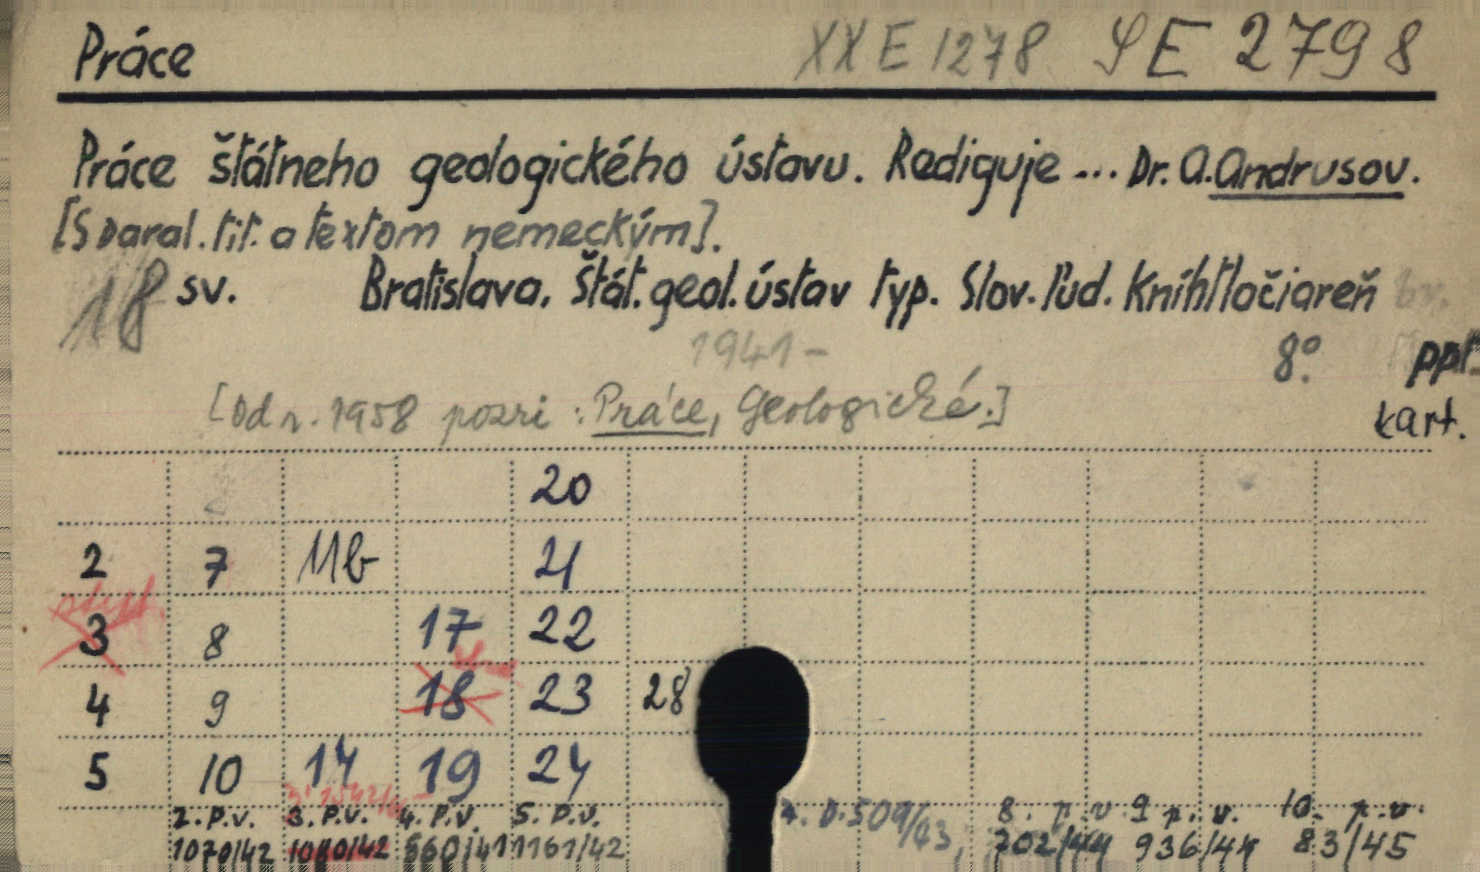 Práce XX E 1278 SE 2798
Práce štátneho geologického ústavu. Rediguje ... Dr. A. Andrusov.
[S paral. tit. a textom nemeckým].
18 sv. Bratislava. Štát. geol. ústav typ. Slov. ľud. Kníhtlačiareň br.
1941 – 8° ppt.
[Od r. 1958 pozri: Práce, Geologické.] kart.
20
2 7 11b 21
3 8 17 22
4 9 18 23 28
5 10 14 19 24
2. P.v. 3. P.v. 4. P.v. 5. P.v. D. 509/43, 8. p. v. 9 p. v. 10. p. v.
1070/42 560/41 1161/42 702/44 936/44 83/45